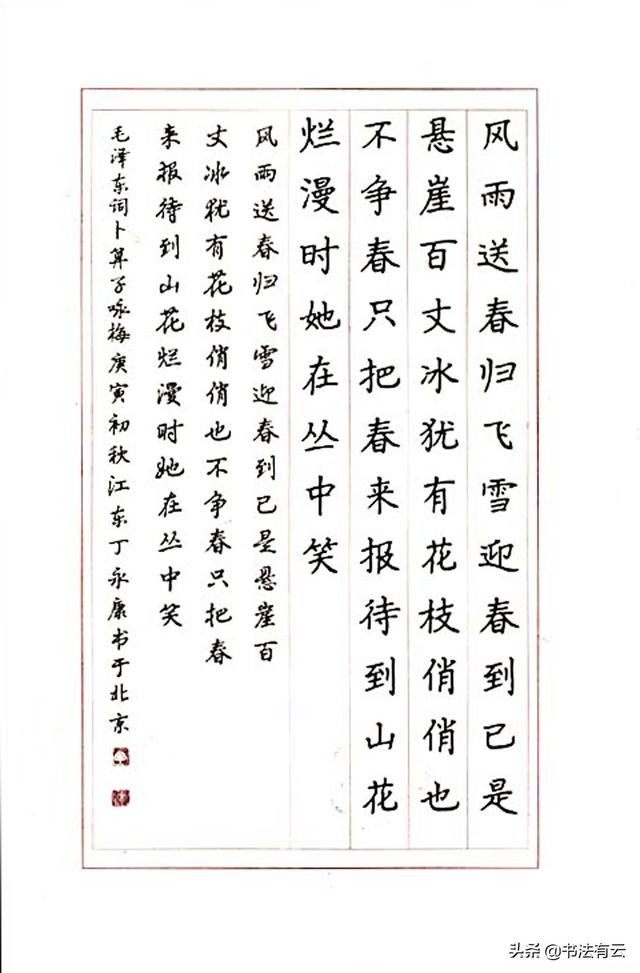 风雨送春归飞雪迎春到已是
悬崖百丈冰犹有花枝俏俏也
不争春只把春来报待到山花
烂漫时她在丛中笑
风雨送春归飞雪迎春到已是悬崖百
丈冰犹有花枝俏俏也不争春只把春
来报待到山花烂漫时她在丛中笑
毛泽东词卜算子咏梅庚寅初秋江东丁永康书于北京
头条@书法有云